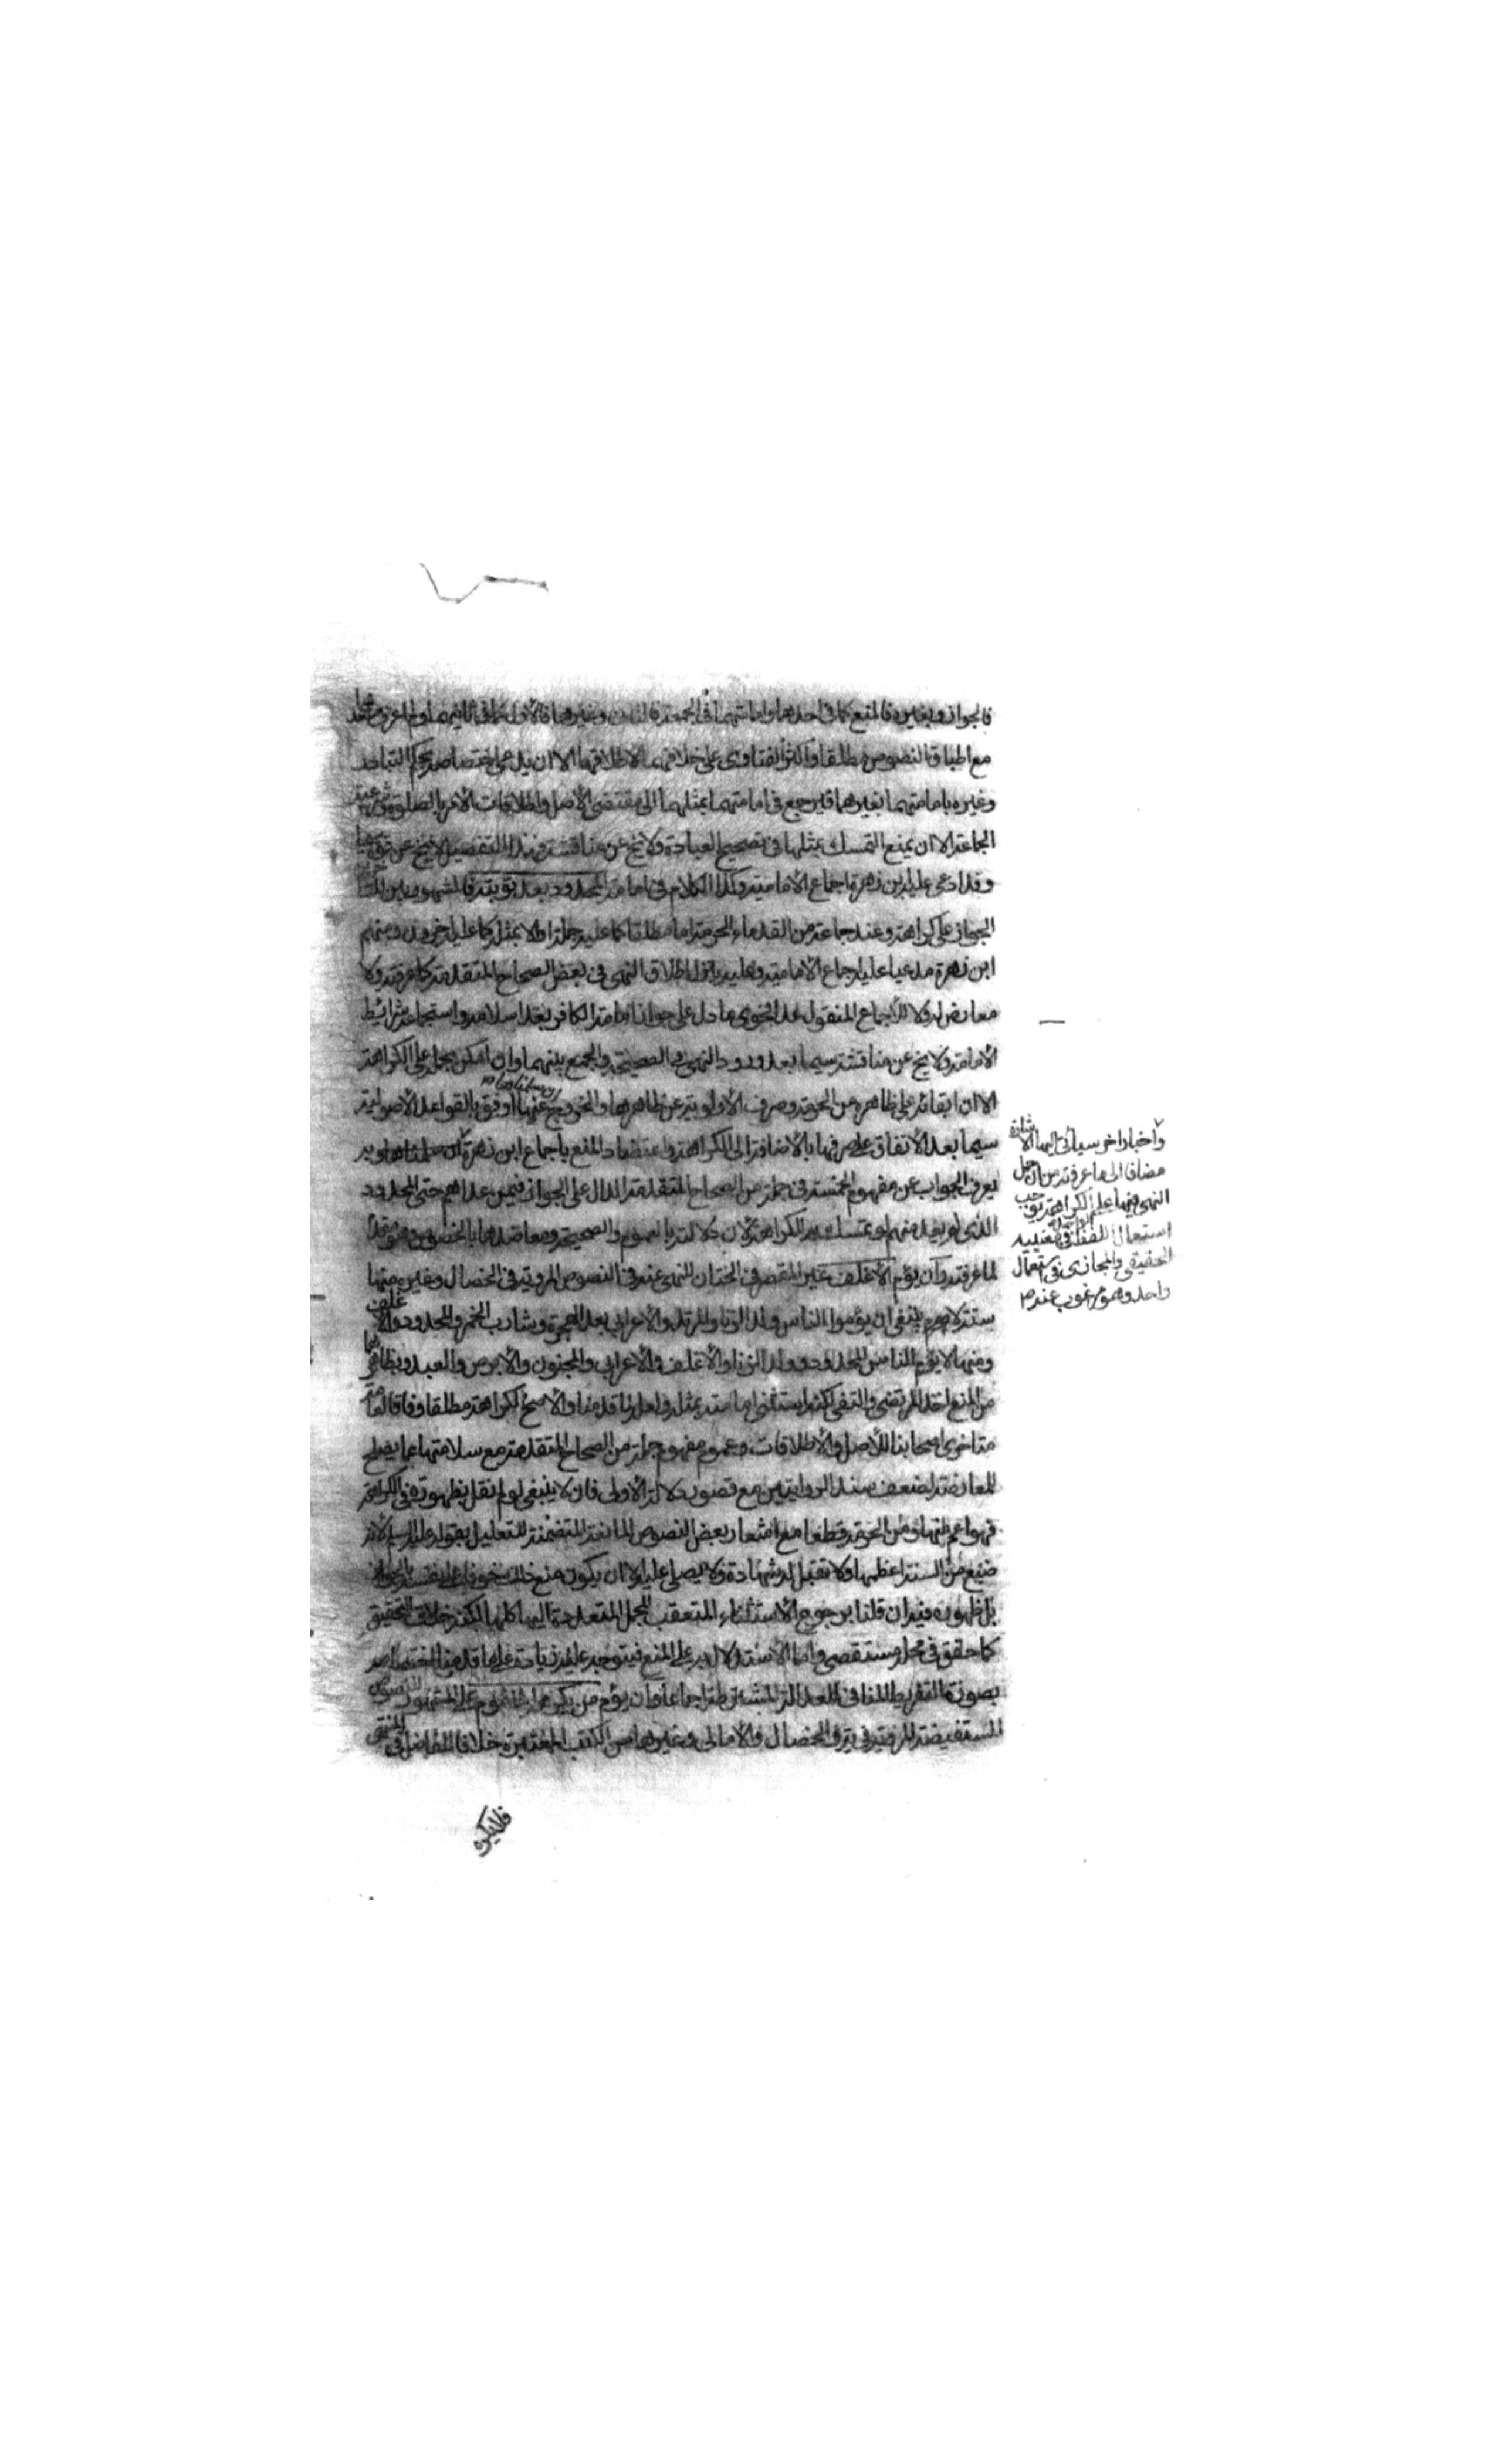 فالجواز وبغيره فالمنع كما في احدهما وامامتهما في الجمعة فالثاني وغيرها فالأول كما في ثانيهما
مع اطباق النصوص مطلقا واكثر الفتاوى على خلافهما لاطلاقهما الا ان يدعى اختصاصه بحكم التبادر
وغيره بامامتهما بغيرهما فيرجع في امامتهما بمثلهما الى مقتضى الأصل واطلاقات الأمر بالصلوة
الجماعة الا ان يمنع التمسك بمثلها في تصحيح العبادة ولا يخ عن مناقشة فهذا التفصيل لا يخ عن قوة
وقد ادعى عليه ابن زهرة اجماع الأمامية وكذا الكلام في امامة المحدود بعد توبته فالمشهور بين
الجواز على كراهة وعند جماعة من القدماء الحرمة اما مطلقا كما عليه جملة او الا بمثله كما عليه اخرون ومنهم
ابن زهرة مدعيا عليه اجماع الأمامية وعليه ينزل اطلاق النهى في بعض الصحاح المتقدمة كما عرفته ولا
معارض له ولا للأجماع المنقول عدا فحوى ما دل على جواز امامة الكافر بعد اسلامه واستجماعه شرائط
الأمامة ولا يخ عن مناقشة سيما بعد ورود النهى في الصحيحة والجمع بينهما وان امكن بحمله على الكراهة
الا ان ابقائه على ظاهره من الحرمة وصرف الأولوية عن ظاهرها والخروج عنها اوفق بالقواعد الأصولية
سيما بعد الأتفاق على صرفها بالأضافة الى الكراهة واعتضاد المنع باجماع ابن زهرة
يعرف الجواب عن مفهوم الخمسة في جملة من الصحاح المتقدمة الدال على الجواز فيمن عداهم حتى المحدود
الذى لم يعد منهم لو تمسك به للكراهة لأن دلالته بالعموم والصحيحة ومعاضدها بالخصوص
لما عرفته وأن يؤم الأغلف غير المقصر في الختان للنهى عنه في النصوص المروية في الخصال وغيره منها
ستة لا ينبغى ان يؤموا الناس ولد الزنا والمرتد والأعرابى بعد الهجرة وشارب الخمر والمحدود والأغلف
ومنها لا يؤم الناس المحدود وولد الزنا والأغلف والأعرابى والمجنون والأبرص والعبد وبظاهرهما
من المنع اخذ المرتضى والتقى لكنه استثنى امامته بمثله ولعله لما قدمنا والأصح الكراهة مطلقا وفاقا لعامة
متاخرى اصحابنا للأصل والأطلاقات وعموم مفهوم جملة من الصحاح المتقدمة مع سلامتها عما يصلح
للمعارضة لضعف سند الروايتين مع قصور دلالة الأولى فان لا ينبغى لو لم نقل بظهوره في الكراهة
فهو اعم منها ومن الحرمة قطعا مع اشعار بعض النصوص المانعة المتضمنة للتعليل بقوله عليه السلام لأنه
ضيع من السنة اعظمها ولا تقبل له شهادة ولا يصلى عليه الا ان يكون منع ذلك خوفا على نفسه بالجواز
بل ظهوره فيه ان قلنا برجوع الأستثناء المتعقب للجمل المتعددة اليها كلها لكنه خلاف التحقيق
كما حقق في محله مستقصى واما الأستدلال به على المنع فيتوجه عليه زيادة على ما قدمنا اختصاصه
بصورة التفريط المنافى للعدالة المشترطة اجماعا وأن يؤم من يكرهه الماموم على المشهور للنصوص
المستفيضة المروية في يه والخصال والأمالى وغيرها من الكتب المعتبرة خلافا للفاضل في المنتهى
فلا يكره
واخبار اخر سيأتى اليها الاشارة
مضافا الى ما عرفته من ان حمل
النهى فيها على الكراهة يوجب
استعمال اللفظ في معنييه
الحقيقى والمجازى في استعمال
واحد وهو مرغوب عنه م